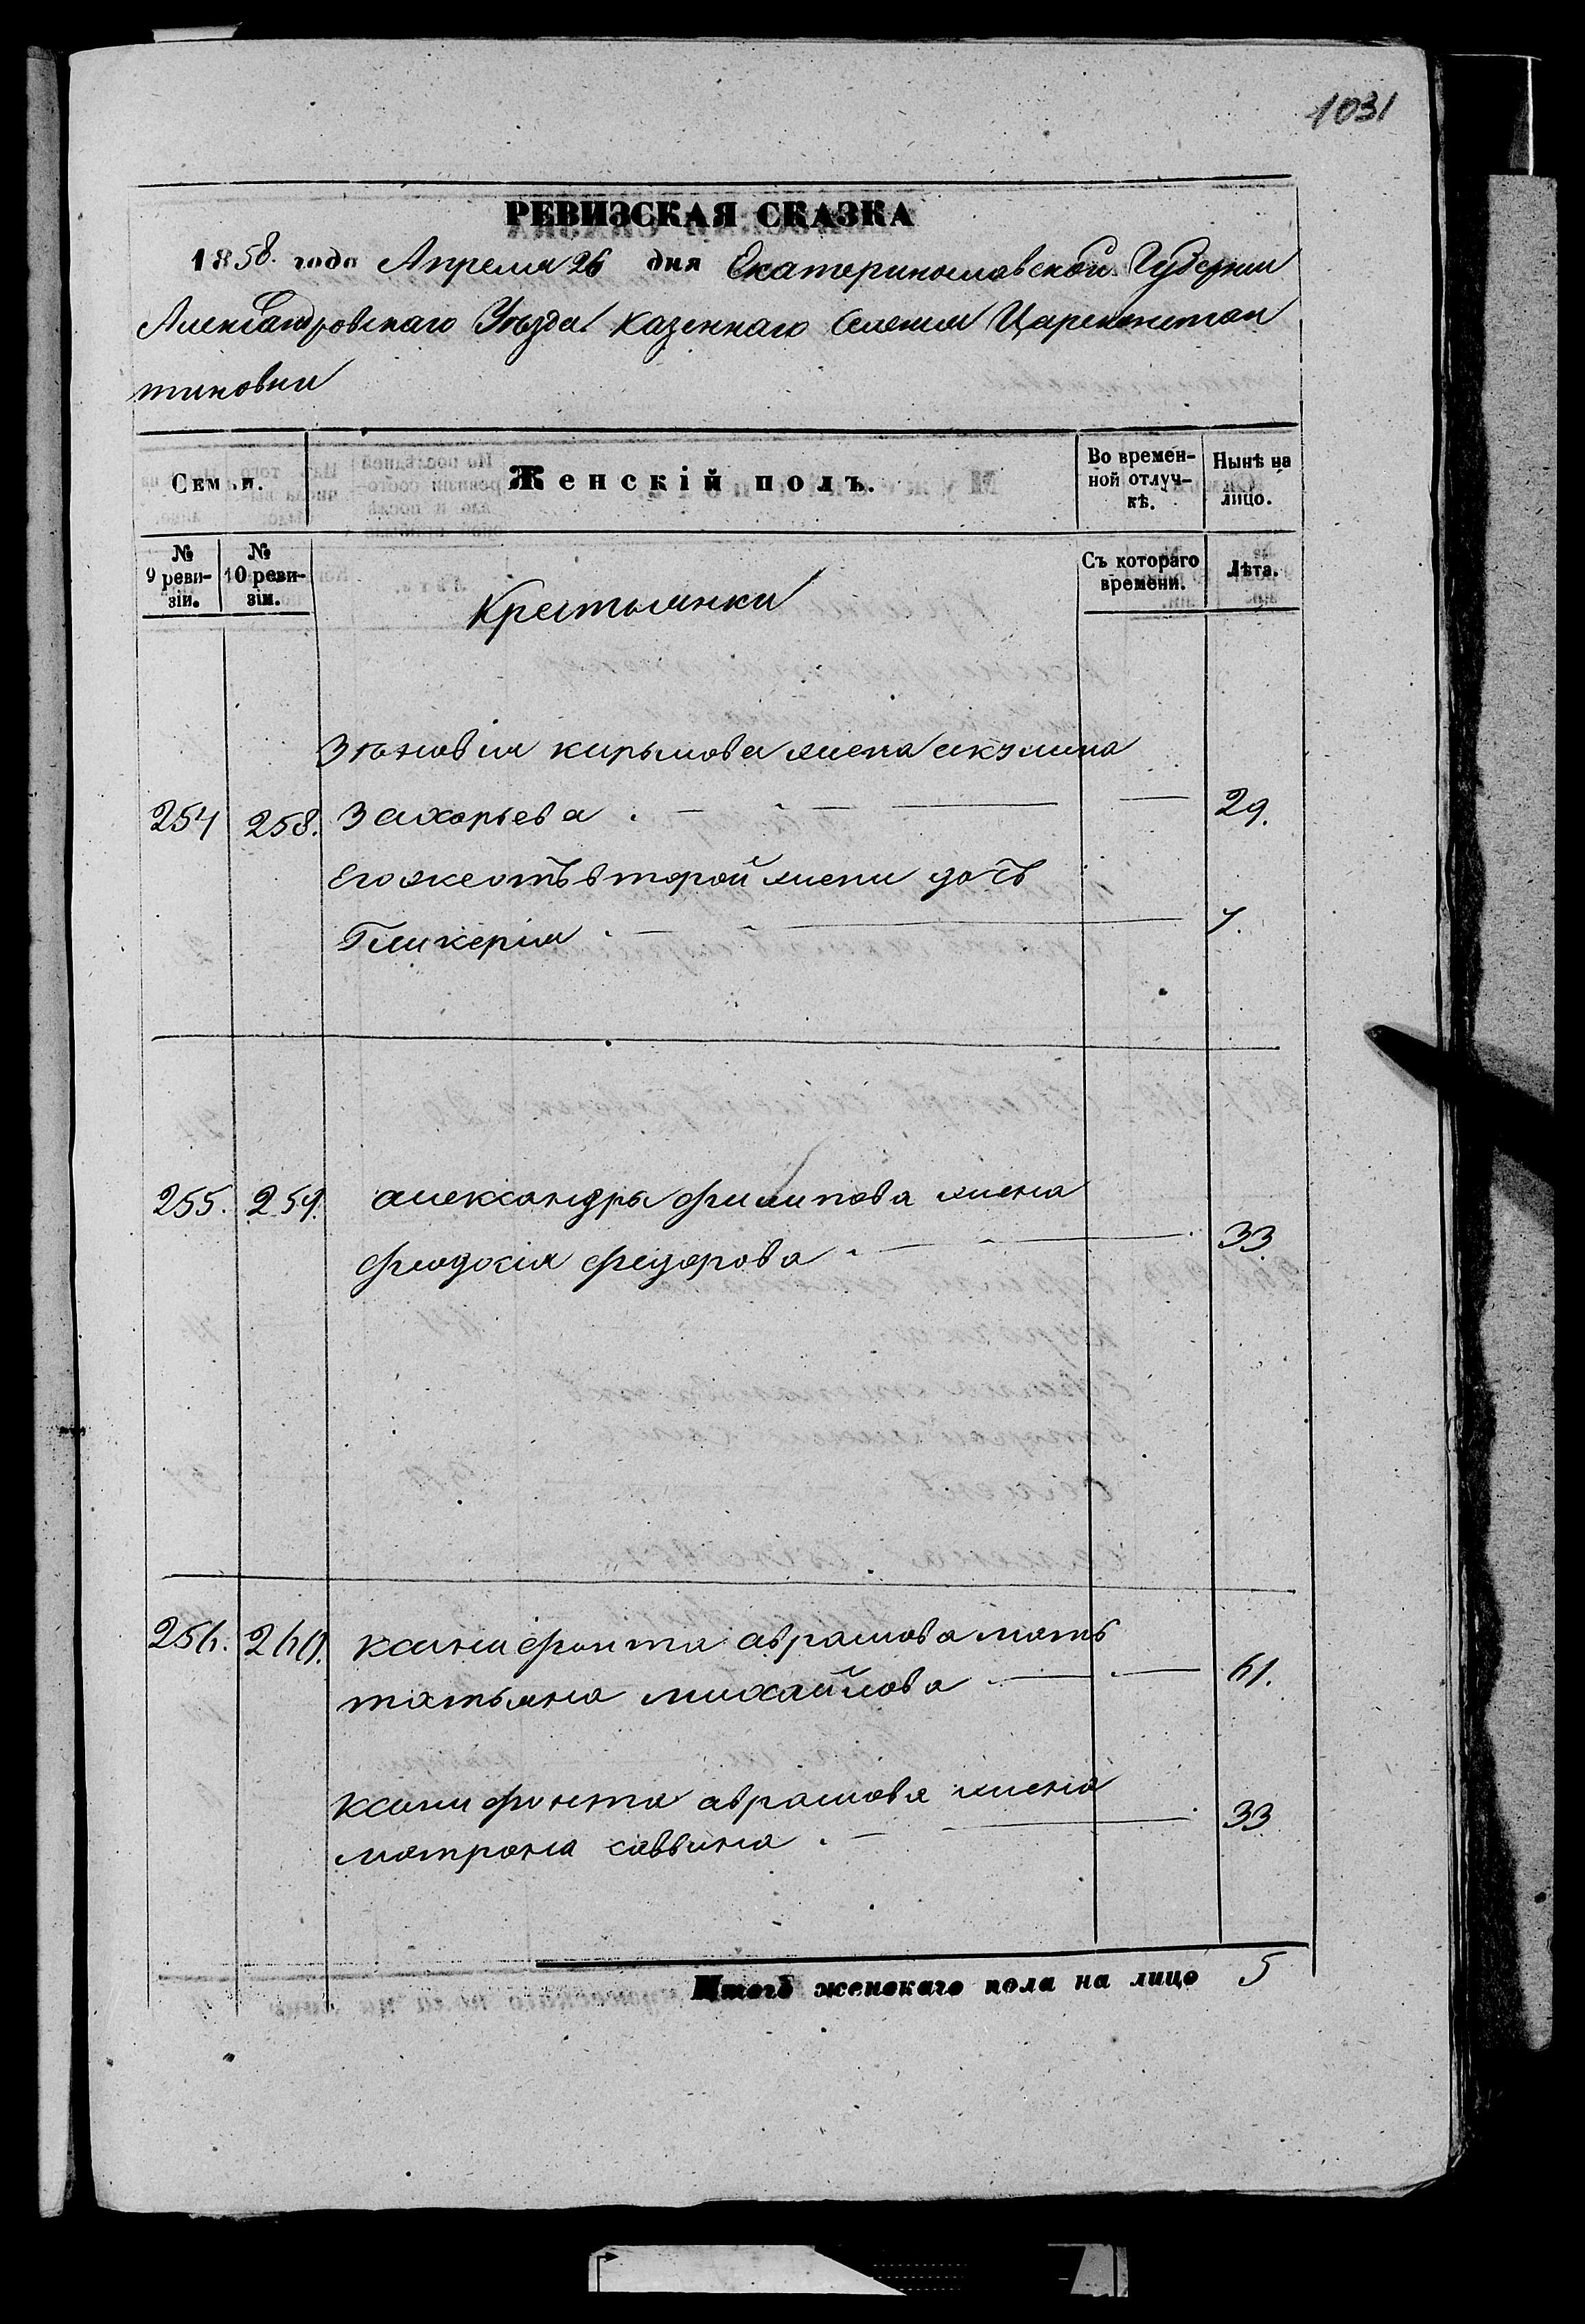 1031
РЕВИЗСКАЯ СКАЗКА
1858. года Апреля 26 дня Екатеринославской Губернии
Александровскаго Уѣзда казеннаго Селения Цареконстан
тиновки
Семьи.
Женскій полъ.
Во времен-
ной отлуч-
кѣ.
Нынѣ на
лицо.
№
9 реви-
зіи.
№
10 реви-
зіи.
Съ котораго
времени.
Лѣта.
Крестьянки
Зѣновія кирылова жена акулина
254 258. Захарьева 29.
Егоже отъ второй жени дочь
Гликерія 7.
255. 259. александра филипова жена
фиодосія федорова 33
256. 260. ксинифонта аврамова мать
татьяна михайлова 61.
ксинифонта аврамова жена
матрона саввина 33
Итогъ женскаго пола на лицо 5